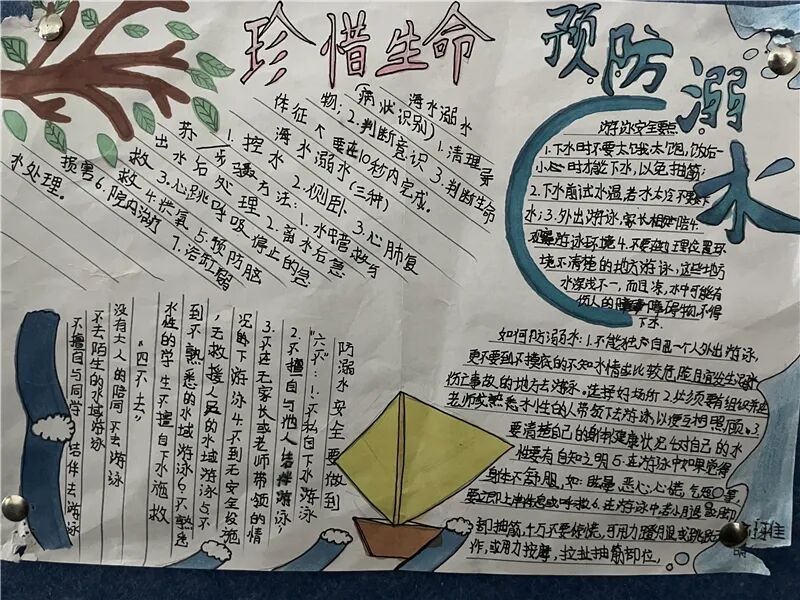 珍惜生命
预防溺水
海水溺水
(病状识别) 1.清理雾
物;2.判断意识 3.判断生命
体征大要在10秒内完成。
海水溺水(三种)
1.控水 2.侧卧 3.心肺复
苏
步骤方法:1.水中营救与
出水后处理 2.离水后急
救 3.心跳呼吸停止的急
救 4.供氧 5.预防脑
损害 6.院内治疗 7.海
水处理。
游泳安全要点
1.下水时不要太饿、太饱,饭后一
小时才能下水,以免抽筋;
2.下水前试水温,若水太冷不要下
水;3.外出游泳,家长相陪 4.
观察游泳环境 4.不要在地理位置环
境不清楚的地方游泳,这些地方
水深浅不一,而且凉,水中可能有
伤人的障碍物,不得
下水.
如何防溺水:1.不能独自一个人外出游泳,
更不要到不摸底的不知水情或比较危险且宜发生溺水
伤亡事故的地方去游泳。选择好场所 2.必须要有组织并在
老师或熟悉水性的人带领下去游泳,以便互相照顾。3
要清楚自己的身体健康状况 4.对自己的水
性要有自知之明 5.在游泳中如果觉得
身体不舒服,如:眩晕、恶心、心慌、气短
要立即上岸休息或呼救 6.在游泳中若小腿
抽筋,千万不要惊慌,可用力蹬腿或跳跃
作,或用力按摩、拉扯抽筋部位,
防溺水安全要做到
"六不":1.不私自下水游泳
2.不擅自与他人结伴游泳,
3.不在无家长或老师带领的情
况的下游泳 4.不到无安全设施
,无救援人员的水域游泳 5.不
到不熟悉的水域游泳 6.不熟悉
水性的学生不擅自下水施救
"四不去"
没有大人的陪同不去游泳
不去陌生的水域游泳
不擅自与同学结伴去游泳